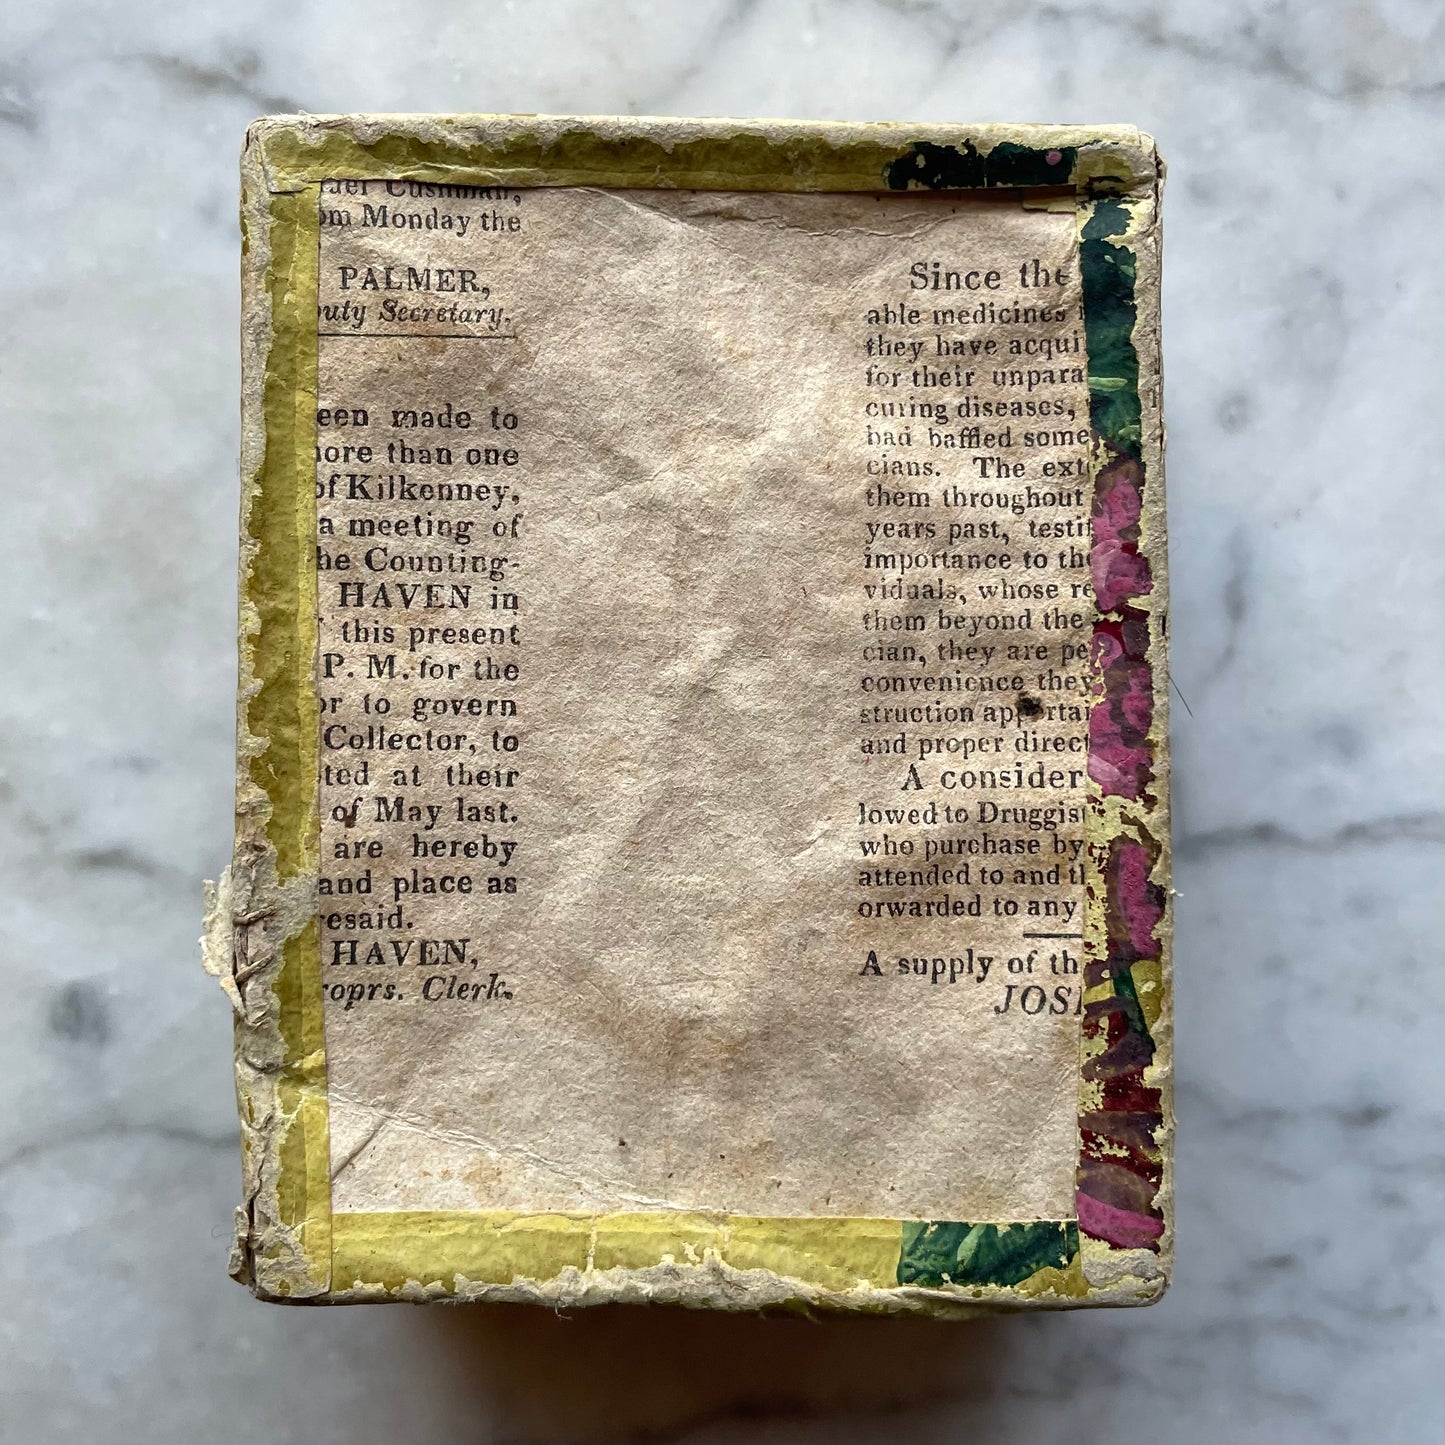 om Monday the
PALMER,
uty Secretary.
een made to
ore than one
of Kilkenney,
a meeting of
he Counting-
HAVEN in
this present
P. M. for the
or to govern
Collector, to
ted at their
of May last.
are hereby
and place as
resaid.
HAVEN,
roprs. Clerk.
Since the
able medicines
they have acqui
for their unpara
curing diseases,
had baffled some
cians. The ext
them throughout
years past, testif
importance to the
viduals, whose re
them beyond the
cian, they are pe
convenience they
struction appertai
and proper direct
A consider
lowed to Druggist
who purchase by
attended to and th
orwarded to any
A supply of th
JOS